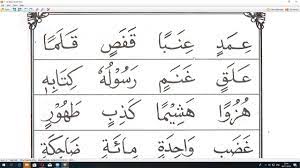 عَمَدٍ عِنَبًا قَفَصٍ قَلَمًا
عَلَقٍ غَنَمٍ رَسُوْلُهٗ كِتَابِهٖ
هُزُوًا هَشِيْمًا كَذِبٍ طَهُوْرٍ
غَضَبٍ وَاحِدَةٍ مِائَةٍ ضَاحِكَةٌ